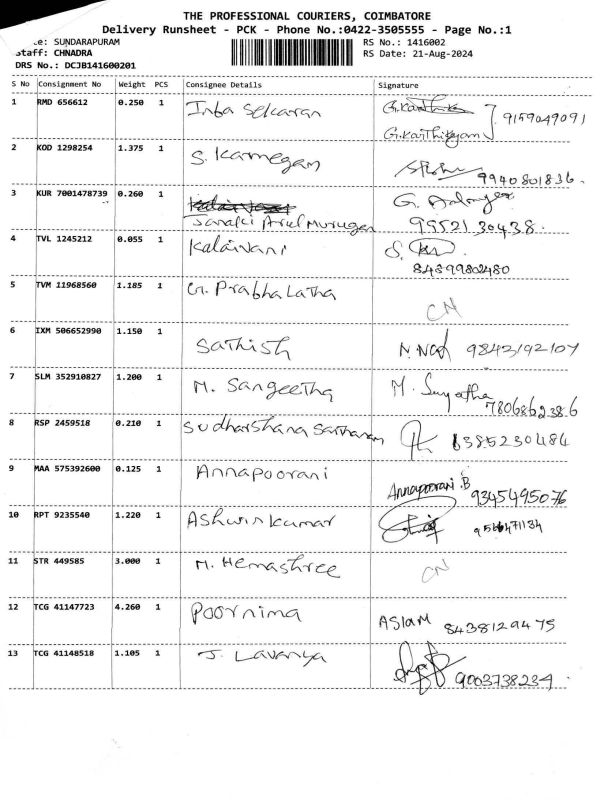 THE PROFESSIONAL COURIERS, COIMBATORE
Delivery Runsheet - PCK - Phone No.:0422-3505555 - Page No.:1
te: SUNDARAPURAM RS No.: 1416002
Staff: CHNADRA RS Date: 21-Aug-2024
DRS No.: DCJB141600201
S No Consignment No Weight PCS Consignee Details Signature
1 RMD 656612 0.250 1 Inba Sekaran
G.Karthikeyan 9159049091
2 KOD 1298254 1.375 1 S. Kamegam
9940801836.
3 KUR 7001478739 0.260 1 G.
Janaki Arul Murugan 9552130438.
4 TVL 1245212 0.055 1 Kalaivani S.
84899802480
5 TVM 11968560 1.185 1 G. Prabha Latha CN
6 IXM 506652990 1.150 1 Sathish N. 9843192107
7 SLM 352910827 1.200 1 M. Sangeetha M. Sangeetha
7806862386
8 RSP 2459518 0.210 1 Sudharshana 6385230484
9 MAA 575392600 0.125 1 Annapoorani Annapoorani.B
9345495076
10 RPT 9235540 1.220 1 Ashwin Kumar
11 STR 449585 3.000 1 M. Hemashree CN
12 TCG 41147723 4.260 1 Poornima ASlaM 8438129475
13 TCG 41148518 1.105 1 J. Lavanya 9003738234